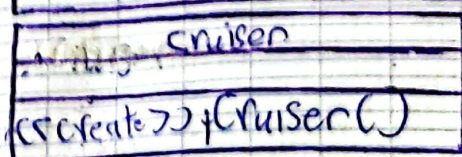 cruiser
<<create>>+Cruiser()